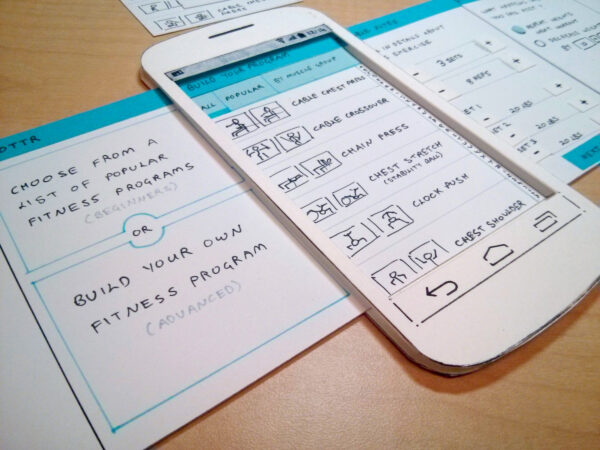 CABLE CHEST
PRESS
OTTR
CHOOSE FROM A
LIST OF POPULAR
FITNESS PROGRAMS
(BEGINNERS)
OR
BUILD YOUR OWN
FITNESS PROGRAM
(ADVANCED)
BUILD YOUR PROGRAM
ALL
POPULAR
BY MUSCLE GROUP
CABLE CHEST PRESS
CABLE CROSSOVER
CHAIN PRESS
CHEST STRETCH
(STABILITY BALL)
CLOCK PUSH
CHEST SHOULDER
IN DETAILS ABOUT
EXERCISE
- 3 SETS +
- 8 REPS +
SET 1 - 20 LBS +
SET 2 - 20 LBS
SET 3 - 20 LBS
REPEAT
WEIGHT
BY
NEXT